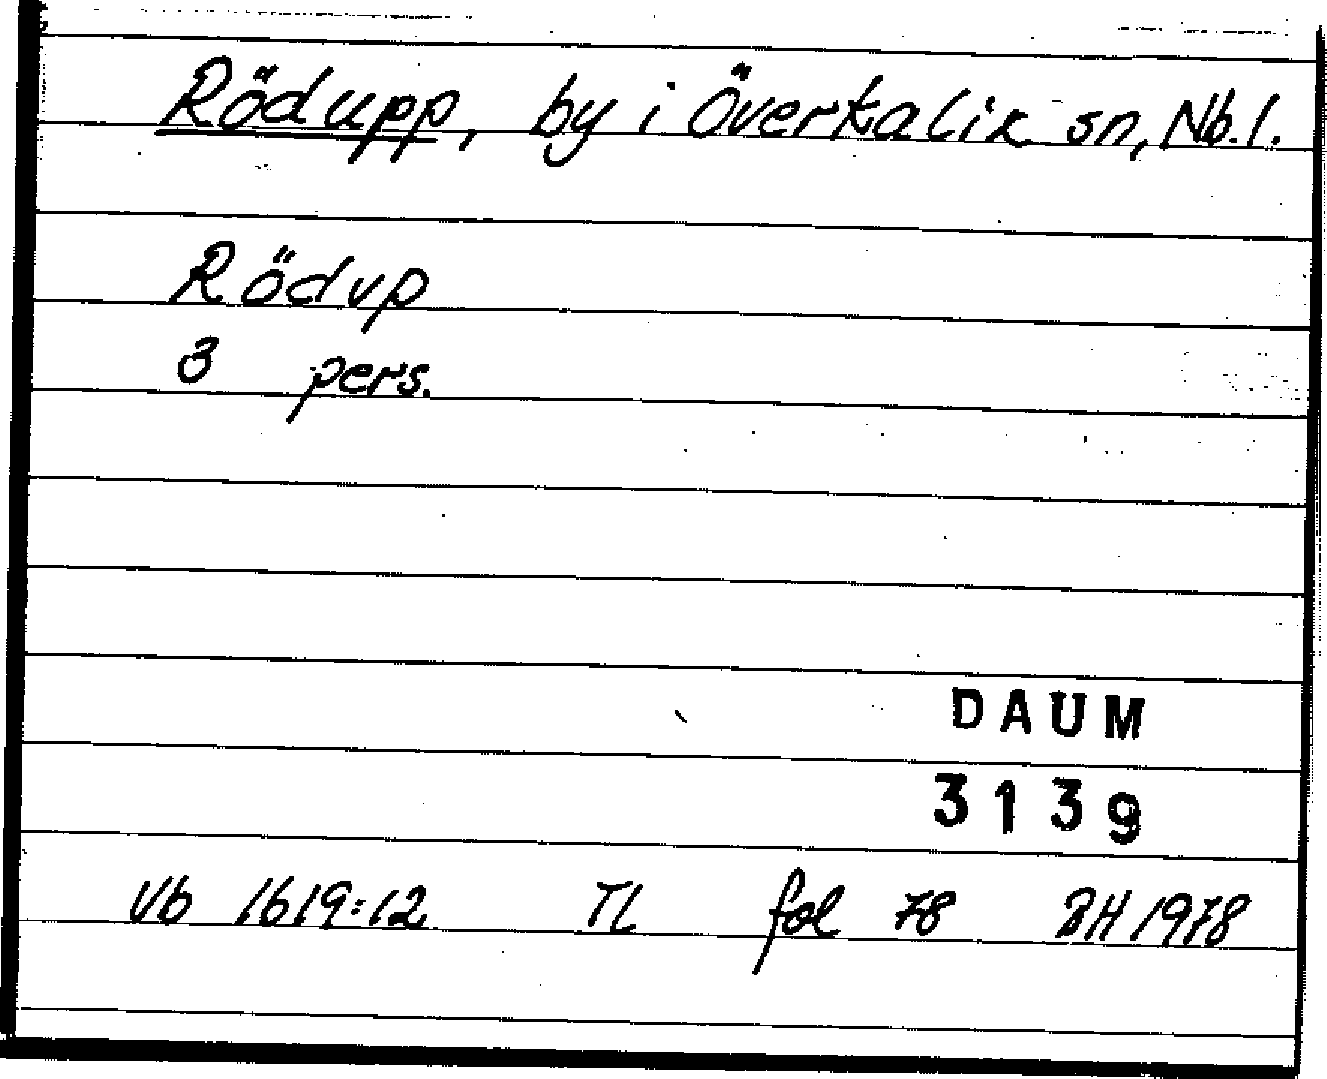 Rödupp, by i Överkalix sn, Nb. l.
Rödup
3 pers.
DAUM
3139
Vb 1619:12 TL fol 78 BH 1978